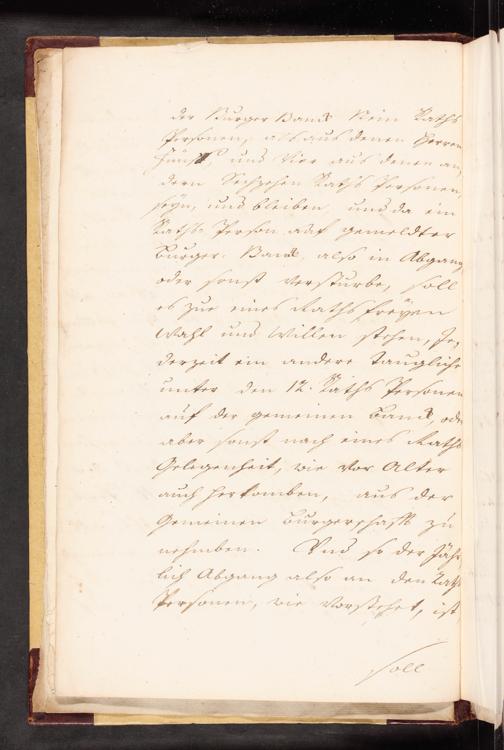 der Burger Banck Neün Raths
Personen, als aus denen Herren
fünff, und Vier aus denen an,
dern Sechzehen Raths Personen,
seyn, und bleiben, und da ein
Raths Person auf gemeldter
Burger Banck, also in Abgang
oder sonst versturbe, soll
es zue eines Raths freyen
Wahl und Willen stehen, Je,
derzeit ein andere Taugliche
unter den 12. Raths Personen
auf der gemeinen Banck, oder
aber sonst nach eines Raths
Gelegenheit, wie vor Alter
auch herkomben, aus der
Gemeinen Burgerschafft zu
nehmben. Und so der Jähr
lich Abgang also an den Raths
Personen, wie vorstehet, ist
soll